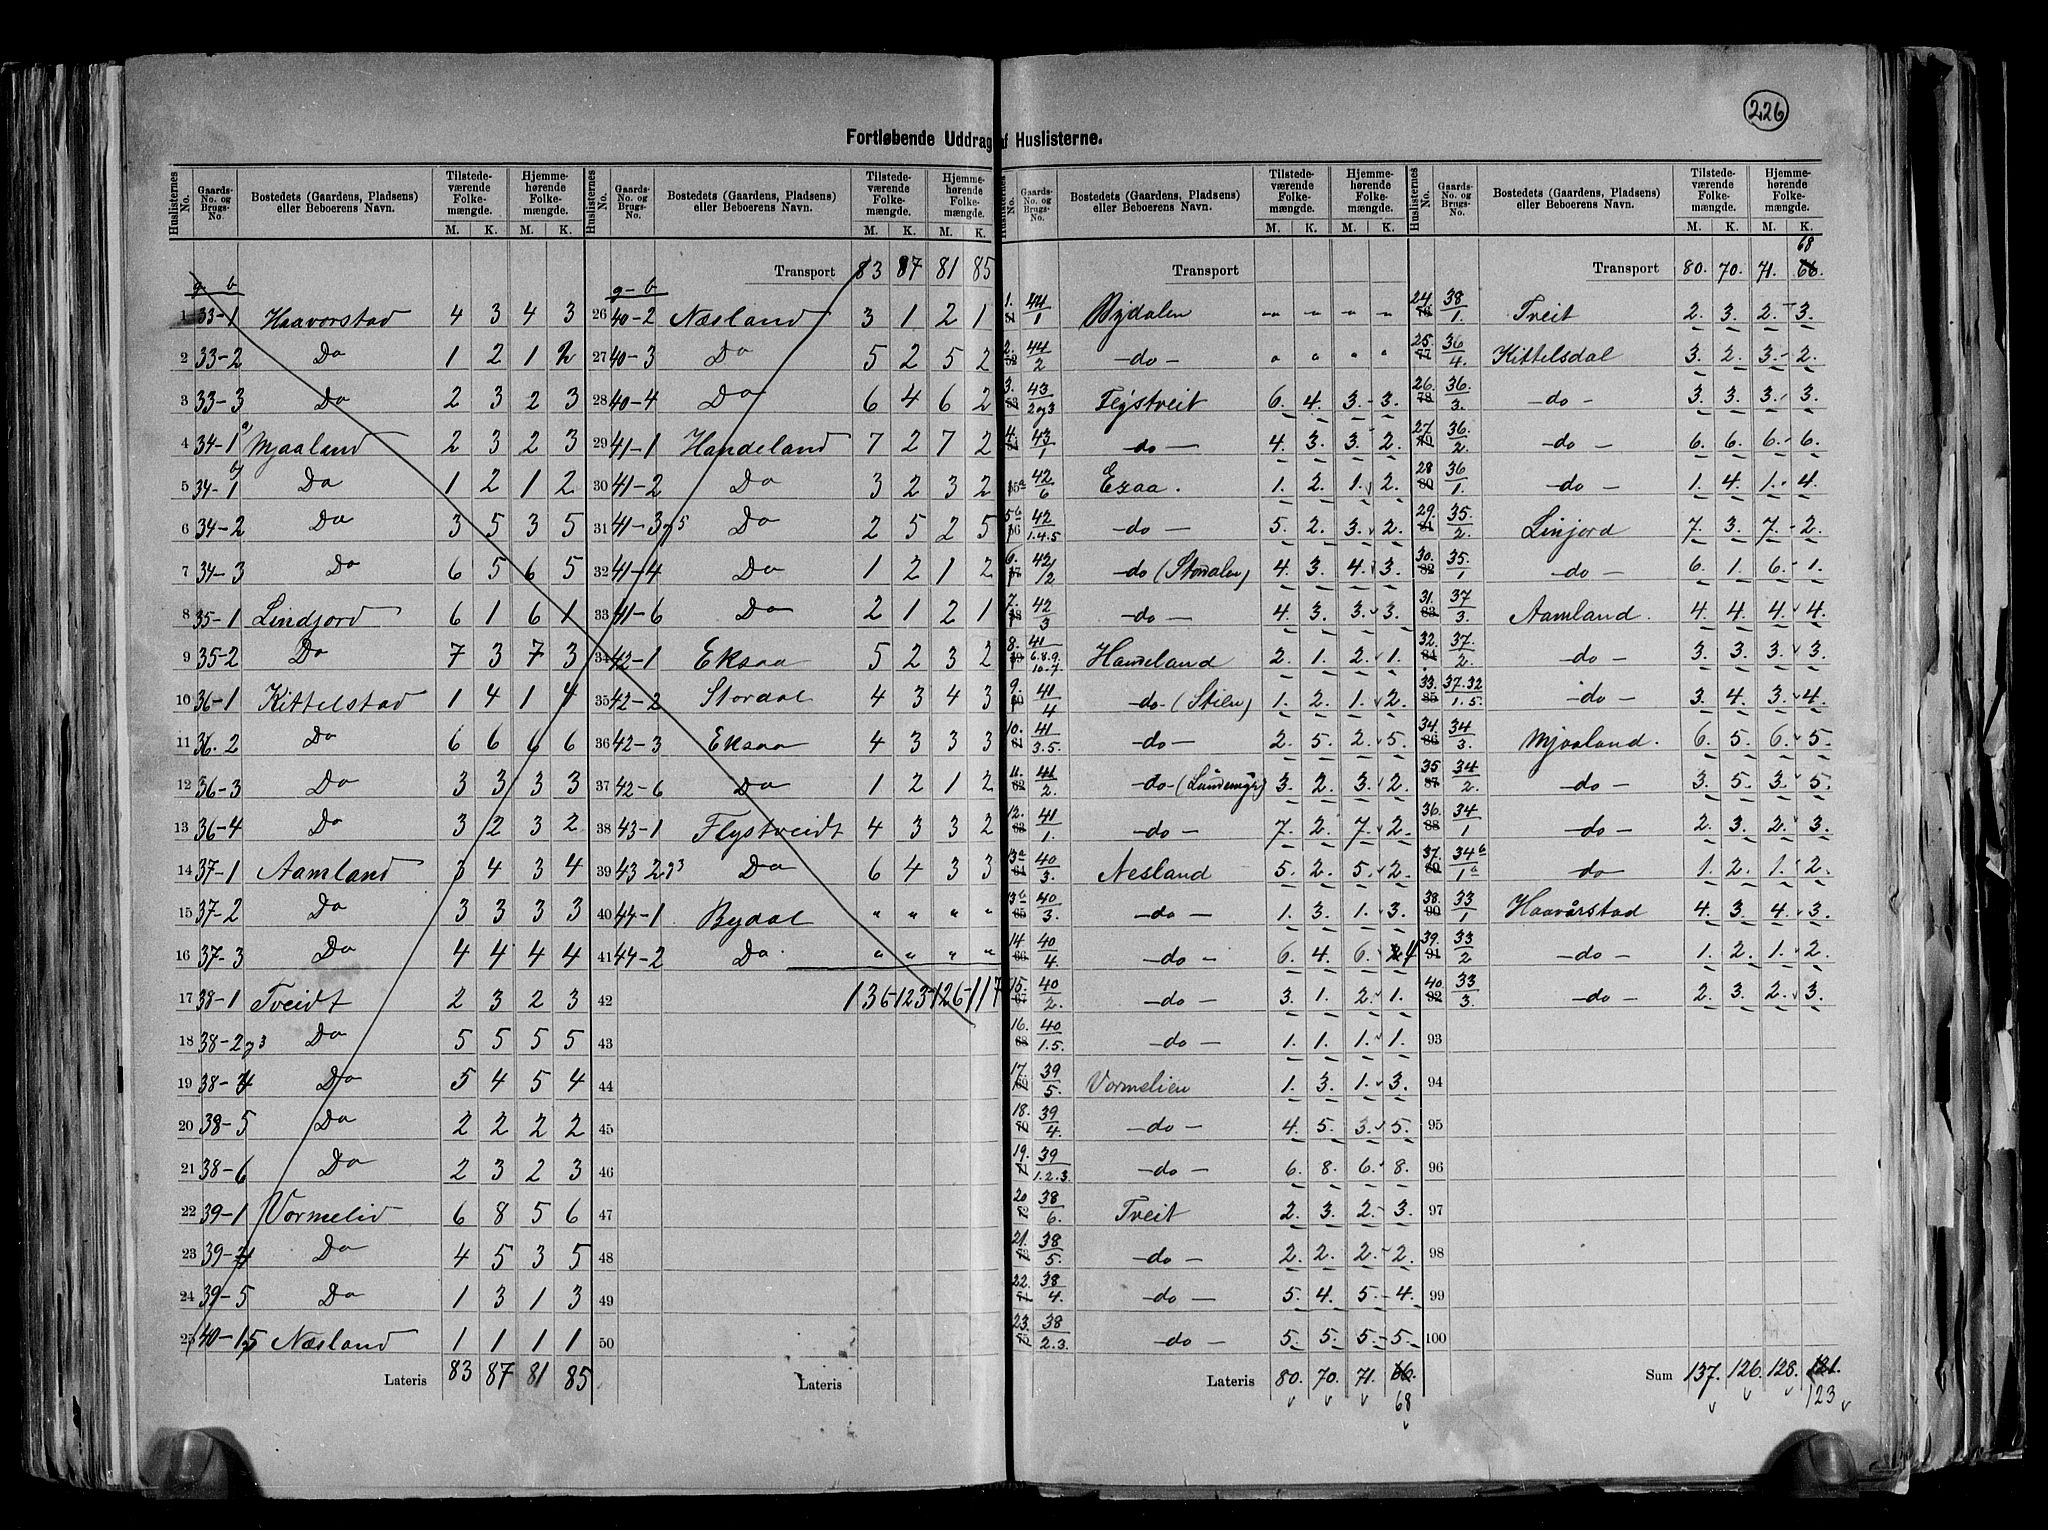 226
Fortløbende Uddrag af Huslisterne.
Huslisternes No. Gaards-No. og Brugs-No. Bostedets (Gaardens, Pladsens) eller Beboerens Navn. Tilstedeværende Folkemængde. M. K. Hjemmehørende Folkemængde. M. K.
g- b
1 33-1 Haavorstad 4 3 4 3
2 33-2 Do 1 2 1 2
3 33-3 Do 2 3 2 3
4 34-1a Mjaaland 2 3 2 3
5 34-1 Do 1 2 1 2
6 34-2 Do 3 5 3 5
7 34-3 Do 6 5 6 5
8 35-1 Lindjord 6 1 6 1
9 35-2 Do 7 3 7 3
10 36-1 Kittelstad 1 4 1 4
11 36.2 Do 6 6 6 6
12 36-3 Do 3 3 3 3
13 36-4 Do 3 2 3 2
14 37-1 Aamland 3 4 3 4
15 37-2 Do 3 3 3 3
16 37-3 Do 4 4 4 4
17 38-1 Tveidt 2 3 2 3
18 38-2 og 3 Do 5 5 5 5
19 38-4 Do 5 4 5 4
20 38-5 Do 2 2 2 2
21 38-6 Do 2 3 2 3
22 39-1 Vormelid 6 8 5 6
23 39-4 Do 4 5 3 5
24 39-5 Do 1 3 1 3
25 40-1,5 Næsland 1 1 1 1
Lateris 83 87 81 85
Huslisternes No. Gaards-No. og Brugs-No. Bostedets (Gaardens, Pladsens) eller Beboerens Navn. Tilstedeværende Folkemængde. M. K. Hjemmehørende Folkemængde. M. K.
Transport 83 87 81 85
g- b
26 40-2 Næsland 3 1 2 1
27 40-3 Do 5 2 5 2
28 40-4 Do 6 4 6 2
29 41-1 Handeland 7 2 7 2
30 41-2 Do 3 2 3 2
31 41-3 og 5 Do 2 5 2 5
32 41-4 Do 1 2 1 2
33 41-6 Do 2 1 2 1
34 42-1 Eksaa 5 2 3 2
35 42-2 Stordal 4 3 4 3
36 42-3 Eksaa 4 3 3 3
37 42-6 Do 1 2 1 2
38 43-1 Flystveidt 4 3 3 2
39 43 2 og 3 Do 6 4 3 3
40 44-1 Bydal " " " "
41 44-2 Do " " " "
42 136-123-126-117
43
44
45
46
47
48
49
50
Lateris
Huslisternes No. Gaards-No. og Brugs-No. Bostedets (Gaardens, Pladsens) eller Beboerens Navn. Tilstedeværende Folkemængde. M. K. Hjemmehørende Folkemængde. M. K.
Transport
1. 51 44/1 Bydalen " " " "
2. 52 44/2 -do- " " " "
3. 53 43/2og3 Flystveit 6. 4. 3. 3.
4. 54 43/1 -do- 4. 3. 3. 2.
5a 42/6 Exaa. 1. 2. 1. 2.
5b 56 42/1.4.5 -do- 5. 2. 3. 2.
6. 57 42/2 -do (Stordalen) 4. 3. 4. 3.
7. 58 42/3 -do- 4. 3. 3. 3.
8. 59 41/6.8.9.10.7. Handeland 2. 1. 2. 1.
9. 60 41/4 -do- (Stilen) 1. 2. 1. 2.
10. 61 41/3.5. -do- 2. 5. 2. 5.
11. 62 41/2. -do- (Lundemyr) 3. 2. 3. 2.
12. 63 41/1. -do- 7. 2. 7. 2.
13a 64 40/3. Nesland 5. 2. 5. 2.
13b 65 40/3. -do- 1. 3. 1. 3.
14. 66 40/4. -do- 6. 4. 6. 4
15. 67 40/2. -do- 3. 1. 2. 1.
16. 68 40/1.5. -do- 1. 1. 1. 1.
17. 69 39/5. Vormelien 1. 3. 1. 3.
18. 70 39/4. -do- 4. 5. 3. 5.
19. 71 39/1.2.3. -do- 6. 8. 6. 8.
20 72 38/6. Tveit 2. 3. 2. 3.
21. 73 38/5. -do- 2. 2. 2. 2.
22. 74 38/4. -do- 5. 4. 5. 4.
23. 75 38/2.3. -do- 5. 5. 5. 5.
Lateris 80. 70. 71. 66.
68
Huslisternes No. Gaards-No. og Brugs-No. Bostedets (Gaardens, Pladsens) eller Beboerens Navn. Tilstedeværende Folkemængde. M. K. Hjemmehørende Folkemængde. M. K.
68
Transport 80. 70. 71. 66.
24. 76 38/1. Tveit 2. 3. 2. 3.
25. 77 36/4. Kittelsdal 3. 2. 3. 2.
26. 78 36./3. -do- 3. 3. 3. 3.
27. 79 36./2. -do- 6. 6. 6. 6.
28 80 36/1. -do- 1. 4. 1. 4.
29. 81 35./2. Linjord 7. 3. 7. 2.
30. 82 35./1 -do- 6. 1. 6. 1.
31. 83 37/3. Aamland. 4. 4. 4. 4.
32. 84 37./2. -do- 3. 3. 3. 3.
33. 85 37.32/1.5. -do- 3. 4. 3. 4.
34. 86 34/3. Mjaaland. 6. 5. 6. 5.
35. 87 34/2. -do- 3. 5. 3. 5.
36. 88 34/1 -do- 2. 3. 2. 3.
37. 89 34b/1a -do- 1. 2. 1. 2.
38. 90 33/1 Haavårstad 4. 3. 4. 3.
39. 91 33/2 -do- 1. 2. 1. 2.
40. 92 33/3. -do- 2. 3. 2. 3.
93
94
95
96
97
98
99
100
Sum 137. 126. 128. 121.
123